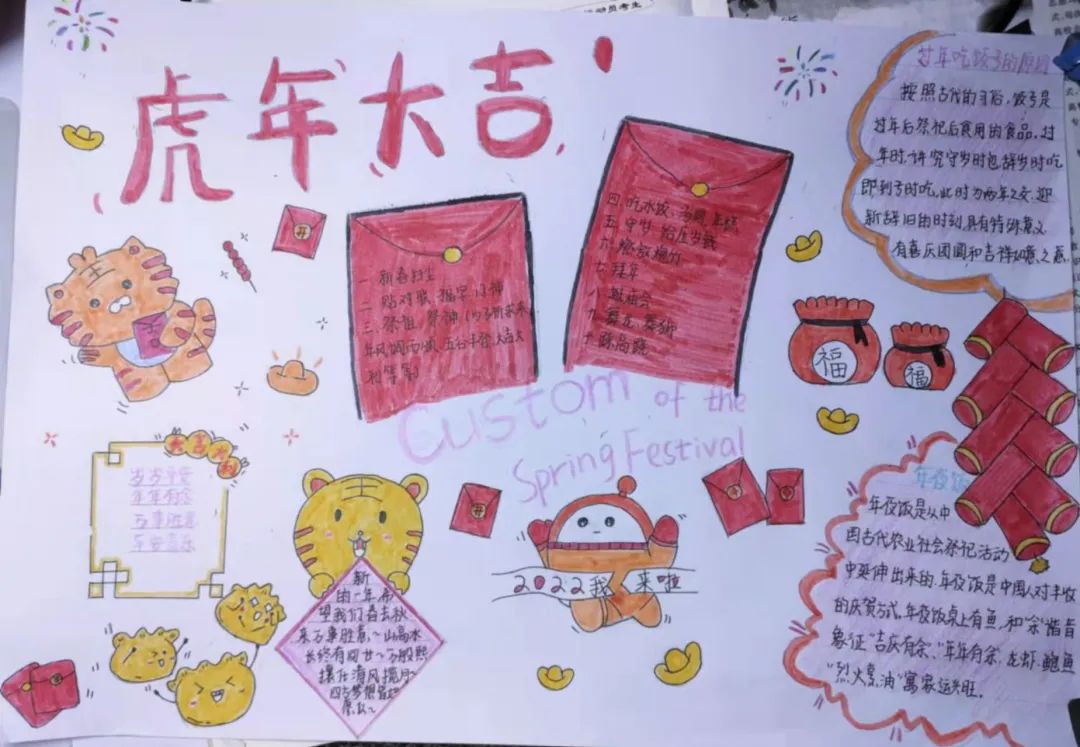 虎年大吉
一 新春扫尘
二 贴对联、福字、门神
三 祭祖、祭神
年风调雨顺、五谷丰登、大吉大
利等等)
四.吃水饺、汤圆、年糕
五.守岁、给压岁钱
六.燃放爆竹
七.拜年
八.逛庙会
九.舞龙、舞狮
十
Custom of the
Spring Festival
过年吃饺子的原因
按照古代的习俗,饺子是
过年后祭祀后食用的食品,过
年时,讲究守岁时包,辞岁时吃
即到子时吃,此时为两年之交,迎
新辞旧的时刻,具有特殊意义
有喜庆团圆和吉祥如意之意.
开
福
福
大吉大利
岁岁平安
年年有余
万事胜意
平安喜乐
开
新
的一年,希
望我们春去秋
来万事胜意~山高水
长终有回甘~万般熙
攘在清风揽月~
愿么~
2022我来啦
年夜饭
年夜饭是从中
国古代农业社会祭祀活动
中延伸出来的.年夜饭是中国人对丰收
的庆贺方式,年夜饭桌上有鱼,和“余”谐音
象征“吉庆有余”、“年年有余”,龙虾、鲍鱼
“烈火烹油”寓家运兴旺.